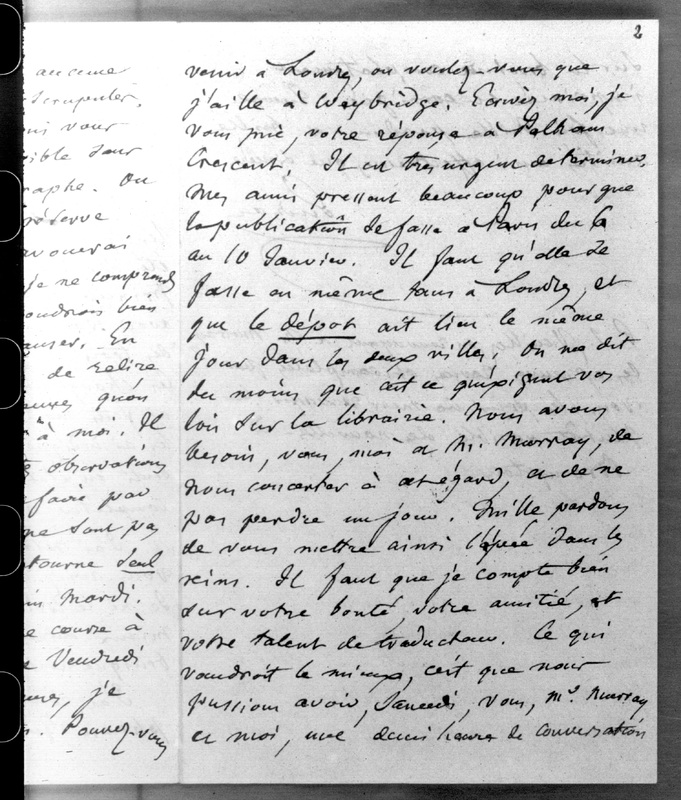 2
aucune
scrupuler.
vous
sible pour
raphe. On
réserve
avouerai
je ne comprends
voudrois bien
causer. En
de relire
qu'on
à moi. Il
observations
faire par
ne sont pas
tourne seul
Mardi.
course à
Vendredi
je
Pouvez-vous
venir à Londres, ou voulez-vous que
j'aille à Weybridge. Ecrivez moi, je
vous prie, votre réponse à Pelham
Crescent. Il est très urgent de terminer.
Mes amis pressent beaucoup pour que
la publication se fasse à Paris du 6
au 10 Janvier. Il faut qu'elle se
fasse en même tems à Londres, et
que le dépot ait lieu le même
jour dans les deux villes. On me dit
du moins que c'est ce qu'exigent vos
lois sur la librairie. Nous avons
besoin, vous, moi et M. Murray, de
nous concerter à cet égard, et de ne
pas perdre un jour. Mille pardons
de vous mettre ainsi l'épée dans les
reins. Il faut que je compte bien
sur votre bonté, votre amitié, et
votre talent de traducteur. Ce qui
vaudroit le mieux, c'est que nous
pussions avoir, Samedi, vous, Mr. Murray
et moi, une demi heure de conversation